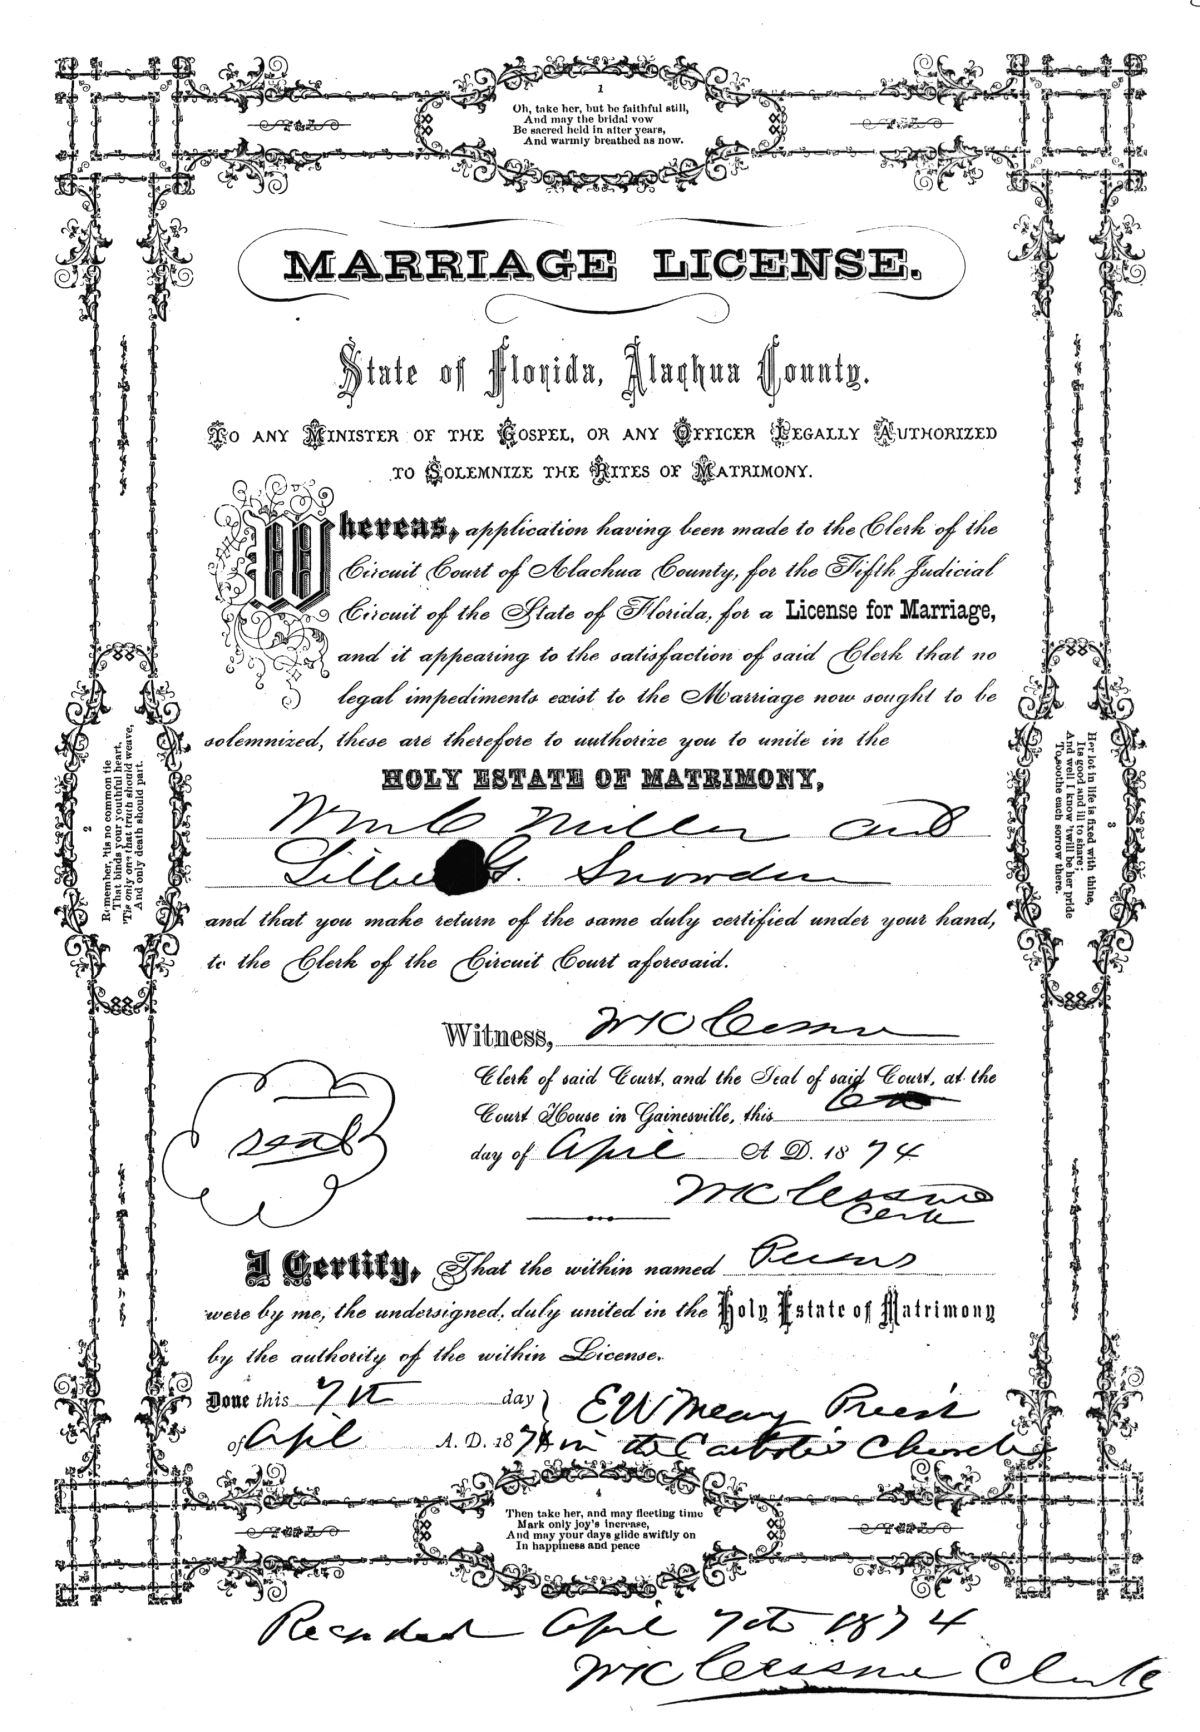 1
Oh, take her, but be faithful still,
And may the bridal vow
Be sacred held in after years,
And warmly breathed as now.
MARRIAGE LICENSE.
State of Florida, Alachua County.
TO ANY MINISTER OF THE GOSPEL, OR ANY OFFICER LEGALLY AUTHORIZED
TO SOLEMNIZE THE RITES OF MATRIMONY.
Whereas, application having been made to the Clerk of the
Circuit Court of Alachua County, for the Fifth Judicial
Circuit of the State of Florida, for a License for Marriage,
and it appearing to the satisfaction of said Clerk that no
legal impediments exist to the Marriage now sought to be
solemnized, these are therefore to authorize you to unite in the
HOLY ESTATE OF MATRIMONY,
Wm C Miller and
G. Snowden
and that you make return of the same duly certified under your hand,
to the Clerk of the Circuit Court aforesaid.
Witness, WK Cessna
Clerk of said Court, and the Seal of said Court, at the
Court House in Gainesville, this
day of April A. D. 1874
WK Cessna
Clerk
seal
I Certify, That the within named
were by me, the undersigned, duly united in the Holy Estate of Matrimony
by the authority of the within License.
Done this 7th day
of April A. D. 1874
Priest
in the Catholic Church
2
Remember, 'tis no common tie
That binds your youthful heart,
'Tis only one that truth should weave,
And only death should part.
3
Her lot in life is fixed with thine,
Its good and ill to share;
And well I know 'twill be her pride
To soothe each sorrow there.
4
Then take her, and may fleeting time
Mark only joy's increase,
And may your days glide swiftly on
In happiness and peace
Recorded April 7th 1874
WK Cessna Clerk